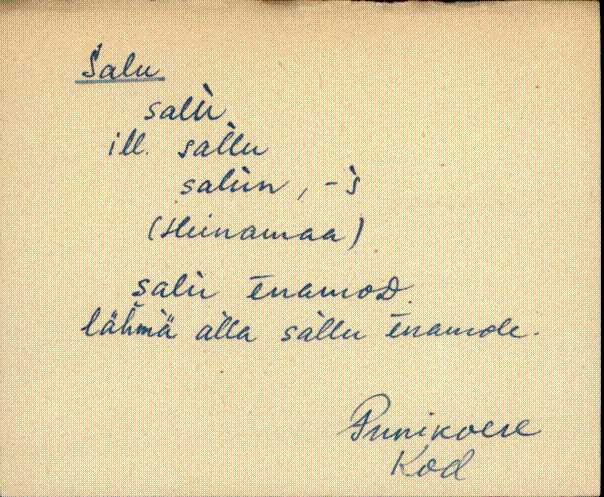 Salu
salù
ill. sàllu
saliin, -s̀
(Heinamaa)
salù ènamoD.
lähmä àlla sàllu ènamole.
Punikvere
Kod